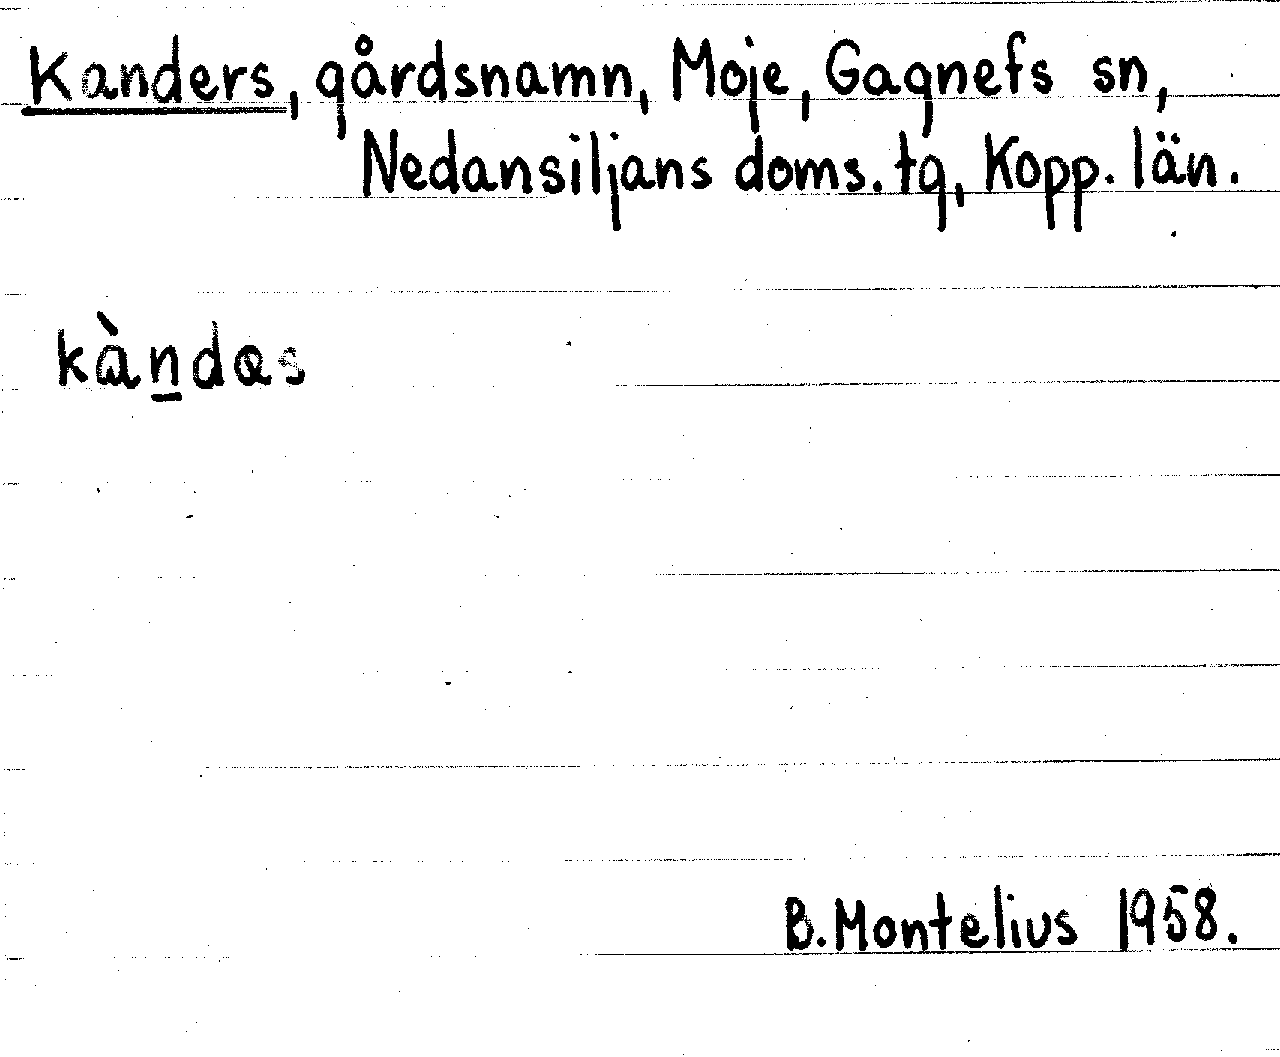 Kanders, gårdsnamn, Moje, Gagnefs sn,
Nedansiljans doms. tg, Kopp. län.
kàn̲das
B. Montelius 1958.